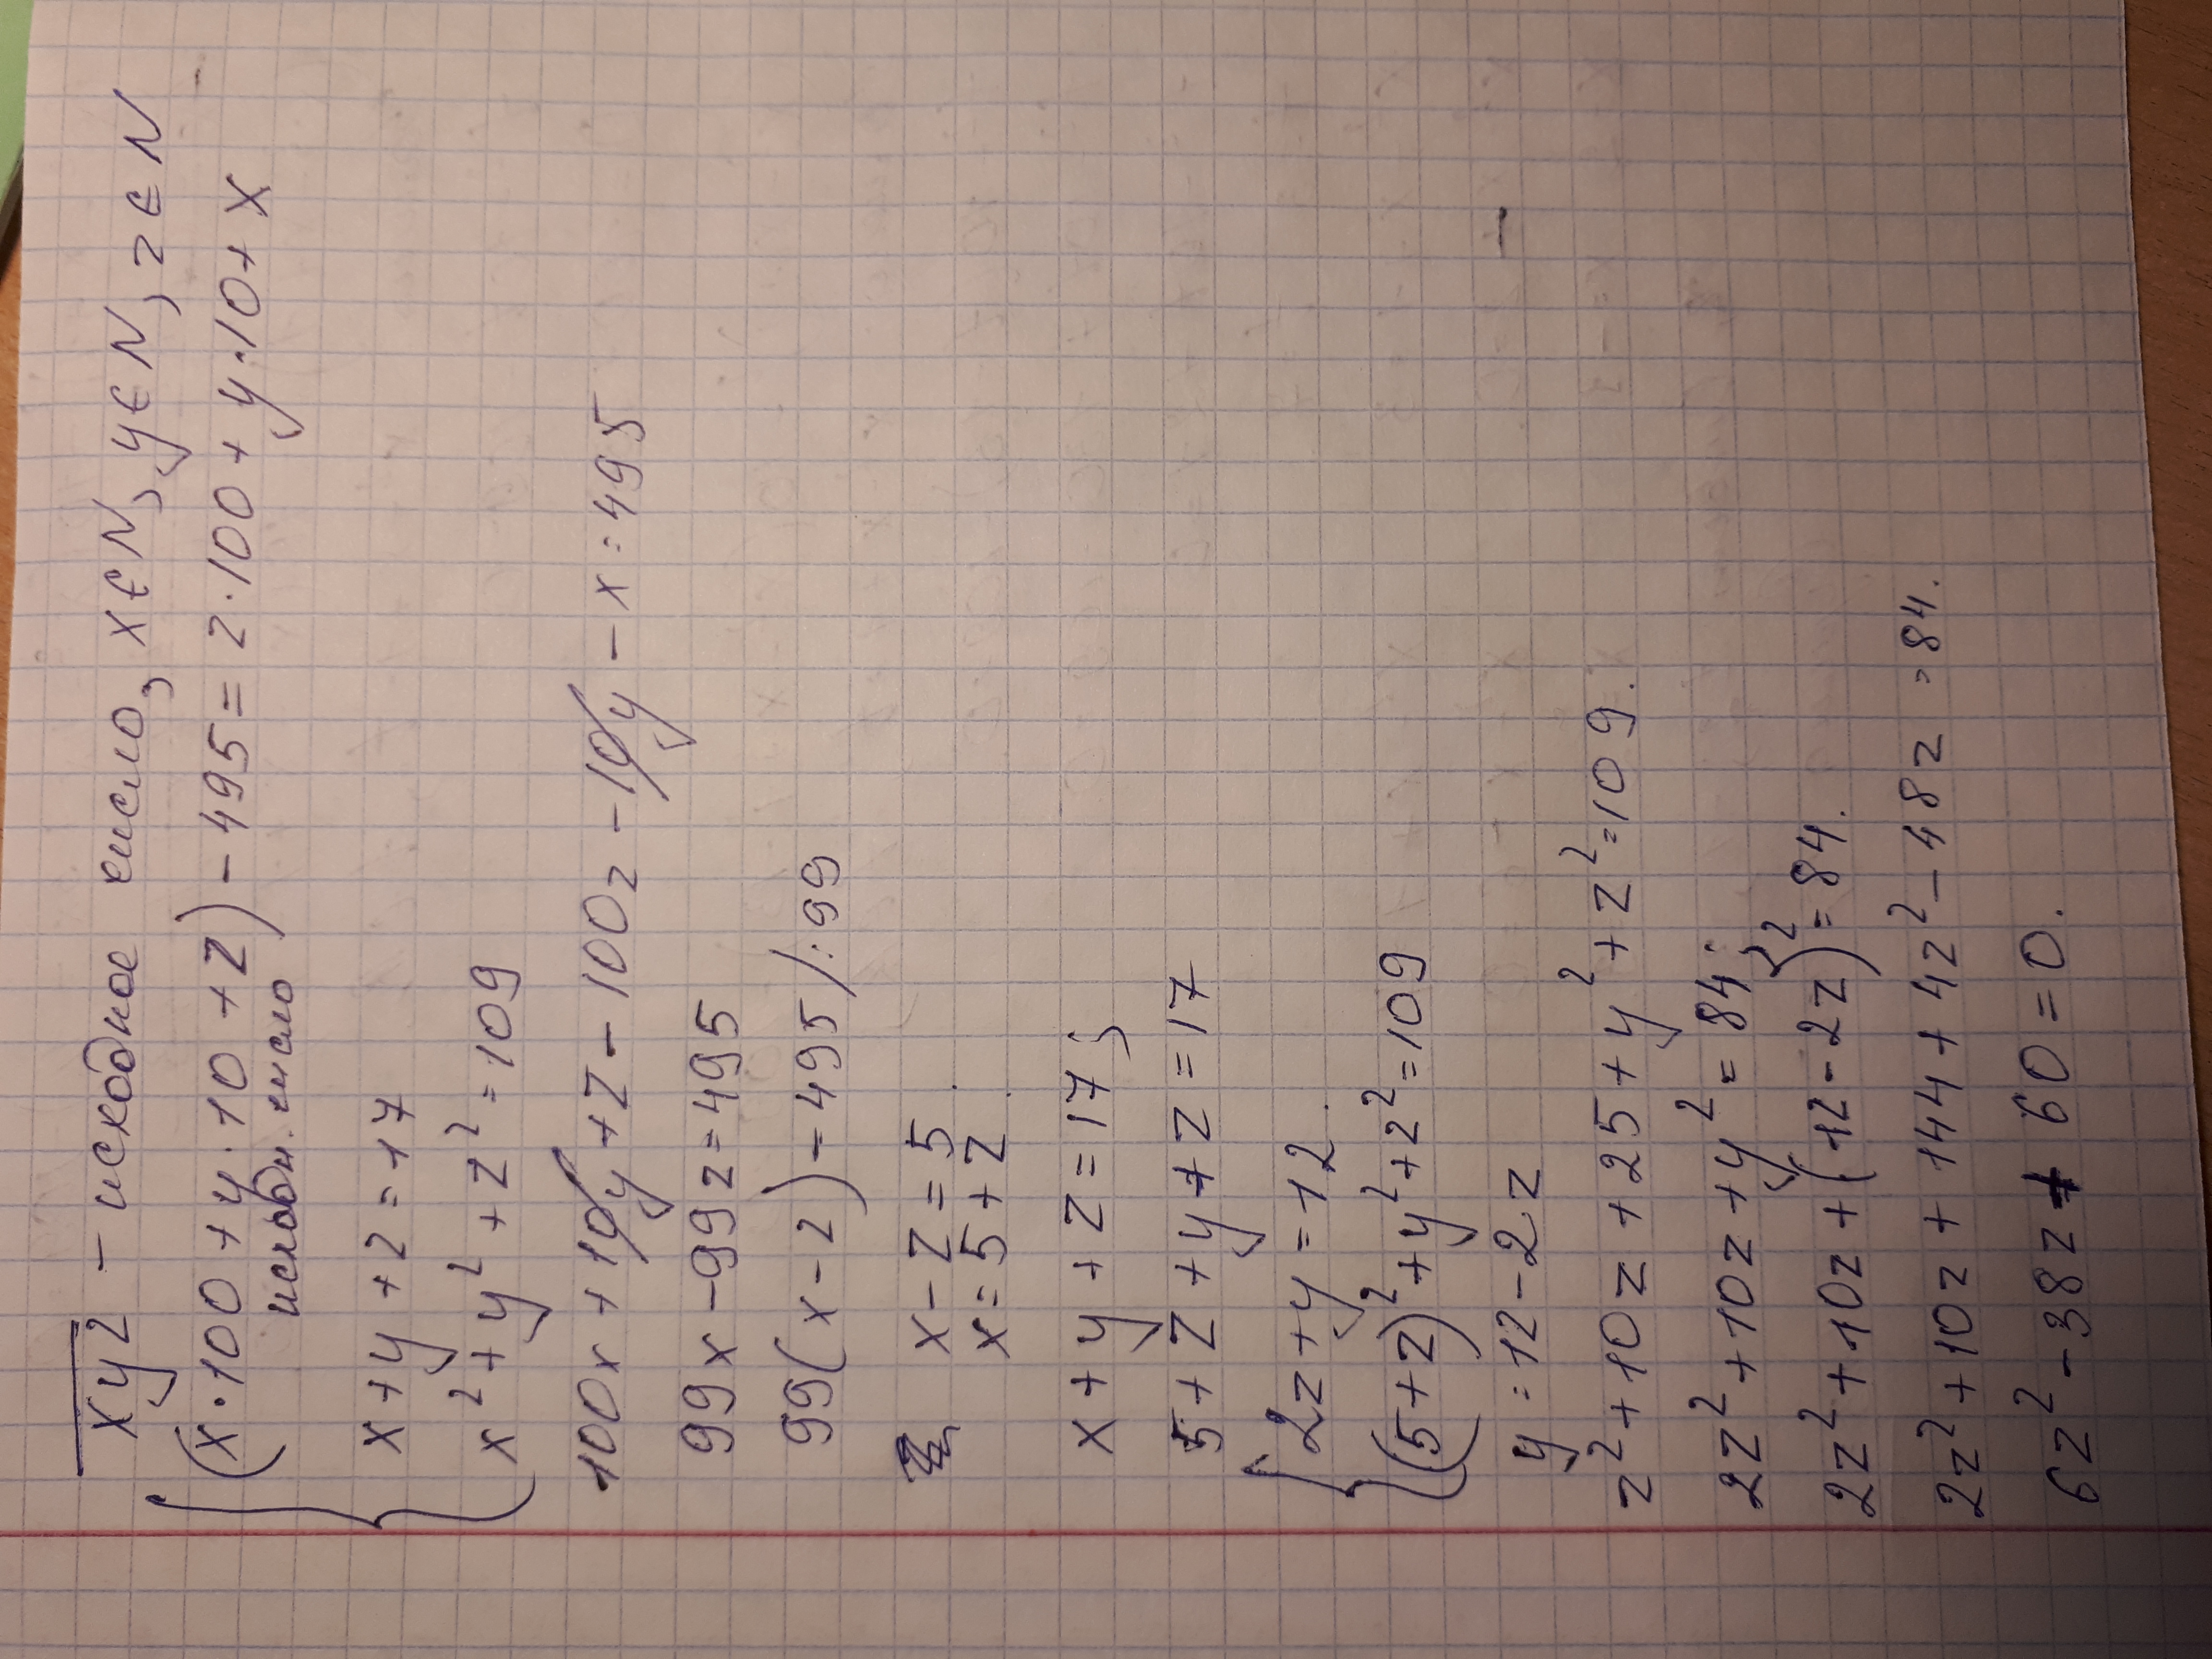 xyz - исходное число, x∈N, y∈N, z∈N
(x·100+y·10+z)-495=z·100+y·10+x
исходн. число
x+y+z=17
x²+y²+z²=109
100x+10y+z-100z-10y-x=495
99x-99z=495
99(x-z)-495/:99
x-z=5
x=5+z
x+y+z=17;
5+z+y+z=17
2z+y=12.
(5+z)²+y²+z²=109
y=12-2z
z²+10z+25+y²+z²=109.
2z²+10z+y²=84;
2z²+10z+(12-2z)²=84.
2z²+10z+144+4z²-48z=84.
6z²-38z+60=0.